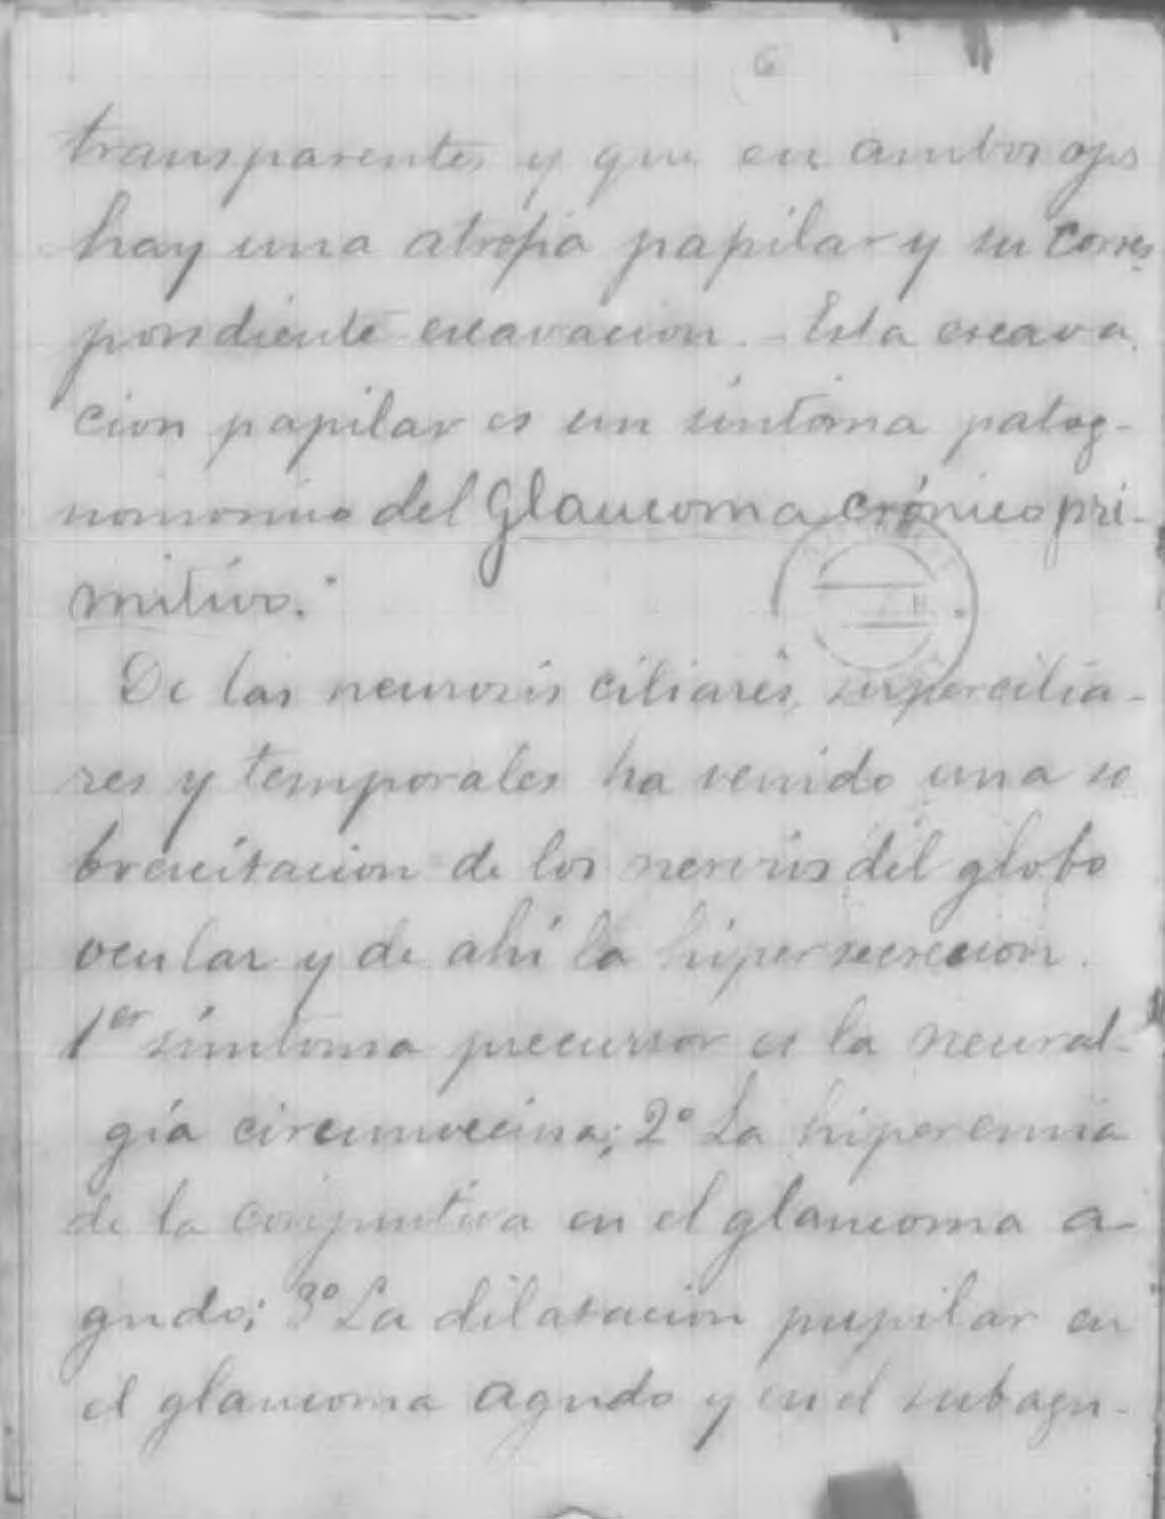 6
transparentes y que en ambos ojos
hay una atrofia papilar y su corres
pondiente excavacion. - Esta excava
cion papilar es un síntoma patog-
nomonico del Glaucoma crónico pri-
mitivo.
De las neurosis ciliares, superciliá-
res y temporales ha venido una so
brexcitacion de los nervios del globo
ocular y de ahí la hipersecrecion.
1er síntoma precursor es la neural-
gía circunvecina; 2º La hiperemia
de la conjuntiva en el glaucoma a-
gudo; 3º La dilatacion pupilar en
el glaucoma agudo y en el subagu-